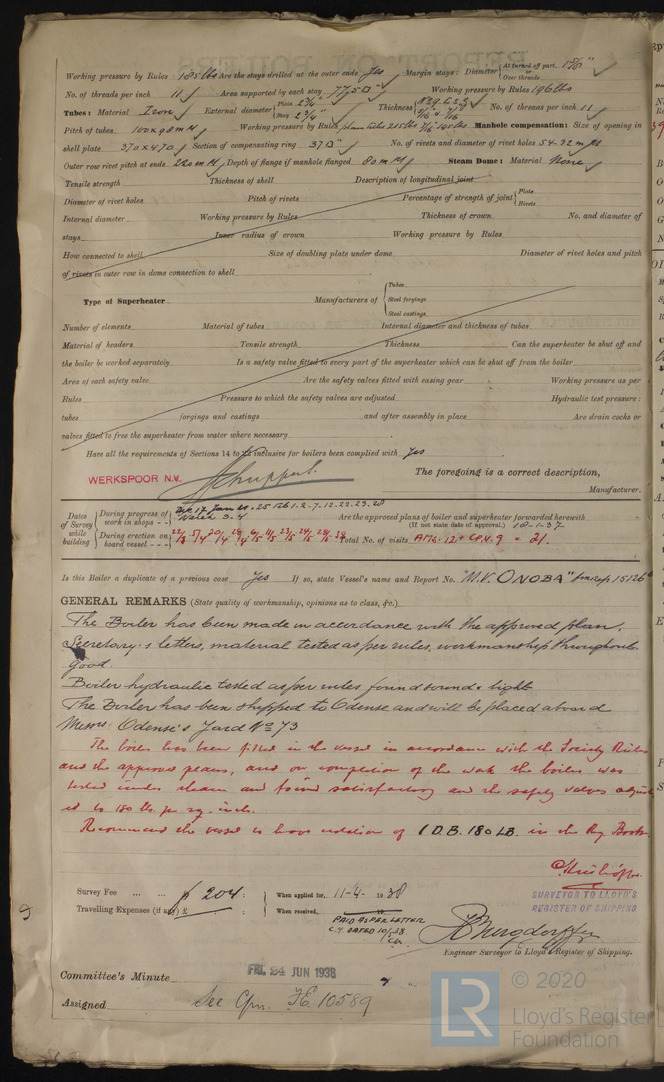 Working pressure by Rules 185 lbs Are the stays drilled at the outer ends Yes Margin stays: Diameter { At turned off part, or Over threads
No. of threads per inch 11 Area supported by each stay 77,5 □" Working pressure by Rules 196 lbs
Tubes: Material Iron External diameter { Plain 2¾" Stay 2¾" Thickness { No. of threads per inch 11
Pitch of tubes 100 x 98 m/m Working pressure by Rules plain tubes 215 lbs Manhole compensation: Size of opening in
shell plate 370 x 470 Section of compensating ring 37 □" No. of rivets and diameter of rivet holes 54-32 m/m
Outer row rivet pitch at ends 220 m/m Depth of flange if manhole flanged 80 m/m Steam Dome: Material None
Tensile strength Thickness of shell Description of longitudinal joint
Diameter of rivet holes Pitch of rivets Percentage of strength of joint { Plate Rivets
Internal diameter Working pressure by Rules Thickness of crown No. and diameter of
stays Inner radius of crown Working pressure by Rules
How connected to shell Size of doubling plate under dome Diameter of rivet holes and pitch
of rivets in outer row in dome connection to shell
Type of Superheater Manufacturers of { Tubes Steel forgings Steel castings
Number of elements Material of tubes Internal diameter and thickness of tubes
Material of headers Tensile strength Thickness Can the superheater be shut off and
the boiler be worked separately Is a safety valve fitted to every part of the superheater which can be shut off from the boiler
Area of each safety valve Are the safety valves fitted with easing gear Working pressure as per
Rules Pressure to which the safety valves are adjusted Hydraulic test pressure:
tubes forgings and castings and after assembly in place Are drain cocks or
valves fitted to free the superheater from water where necessary
Have all the requirements of Sections 14 to 22 inclusive for boilers been complied with Yes
WERKSPOOR N.V. The foregoing is a correct description,
Manufacturer.
Dates of Survey while building { During progress of work in shops - - Dec 17 Jan 25 26 1. 2. 7. 12. 22. 23. 28 March 3. 4 Are the approved plans of boiler and superheater forwarded herewith
(If not state date of approval.) 18-1-37
During erection on board vessel - - - Total No. of visits AMS. 12 + CPN. 9 = 21.
Is this Boiler a duplicate of a previous case Yes If so, state Vessel's name and Report No. "M.V. ONOBA"
GENERAL REMARKS (State quality of workmanship, opinions as to class, &c.)
The Boiler has been made in accordance with the approved plan,
Secretary's letters, material tested as per rules, workmanship throughout
good.
Boiler hydraulic tested as per rules found sound & tight
The Boiler has been shipped to Odense and will be placed aboard
Messrs. Odense's Yard No 73
The boiler has been fitted in the vessel in accordance with the Society Rules
and the approved plans, and on completion of the work the boiler was
tested under steam and found satisfactory and the safety valves adjust-
ed to 180 lbs. per sq. inch.
Recommend the vessel to have notation of 1 D.B. 180 LB. in the Reg Book.
SURVEYOR TO LLOYD'S
REGISTER OF SHIPPING
Survey Fee ... ... ƒ 204: When applied for, 11-4-1938
Travelling Expenses (if any) £ When received,
PAID AS PER LETTER
C.Y. DATED 10/5.38
Engineer Surveyor to Lloyd's Register of Shipping.
Committee's Minute FRI. 24 JUN 1938
Assigned See Cpn. F.E. 10589
LR © 2020
Lloyd's Register
Foundation